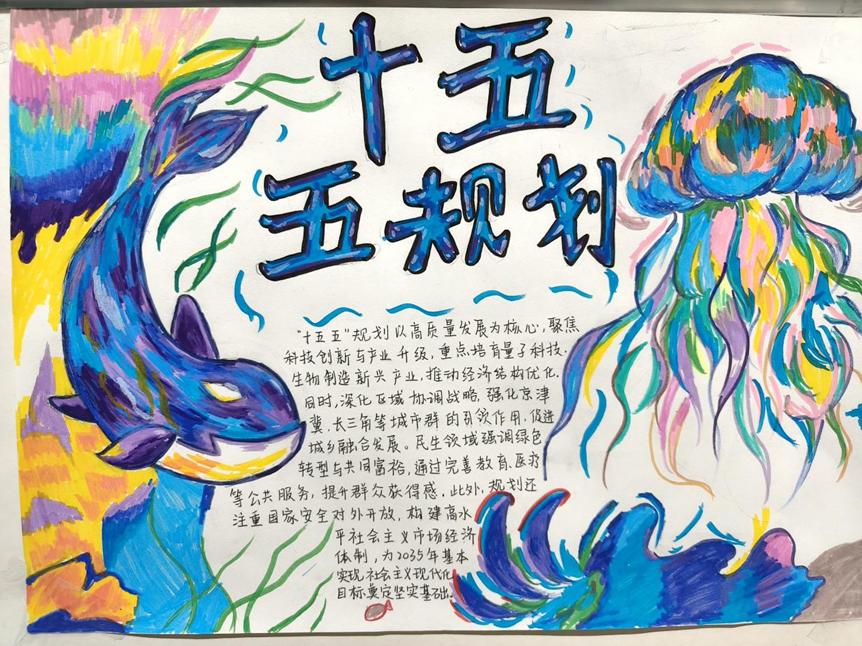 十五
五规划
"十五五"规划以高质量发展为核心，聚焦
科技创新与产业升级，重点培育量子科技、
生物制造新兴产业，推动经济结构优化。
同时，深化区域协调战略，强化京津
冀、长三角等城市群的引领作用，促进
城乡融合发展。民生领域强调绿色
转型与共同富裕，通过完善教育、医疗
等公共服务，提升群众获得感。此外，规划还
注重国家安全对外开放，构建高水
平社会主义市场经济
体制，为2035年基本
实现社会主义现代化
目标奠定坚实基础。